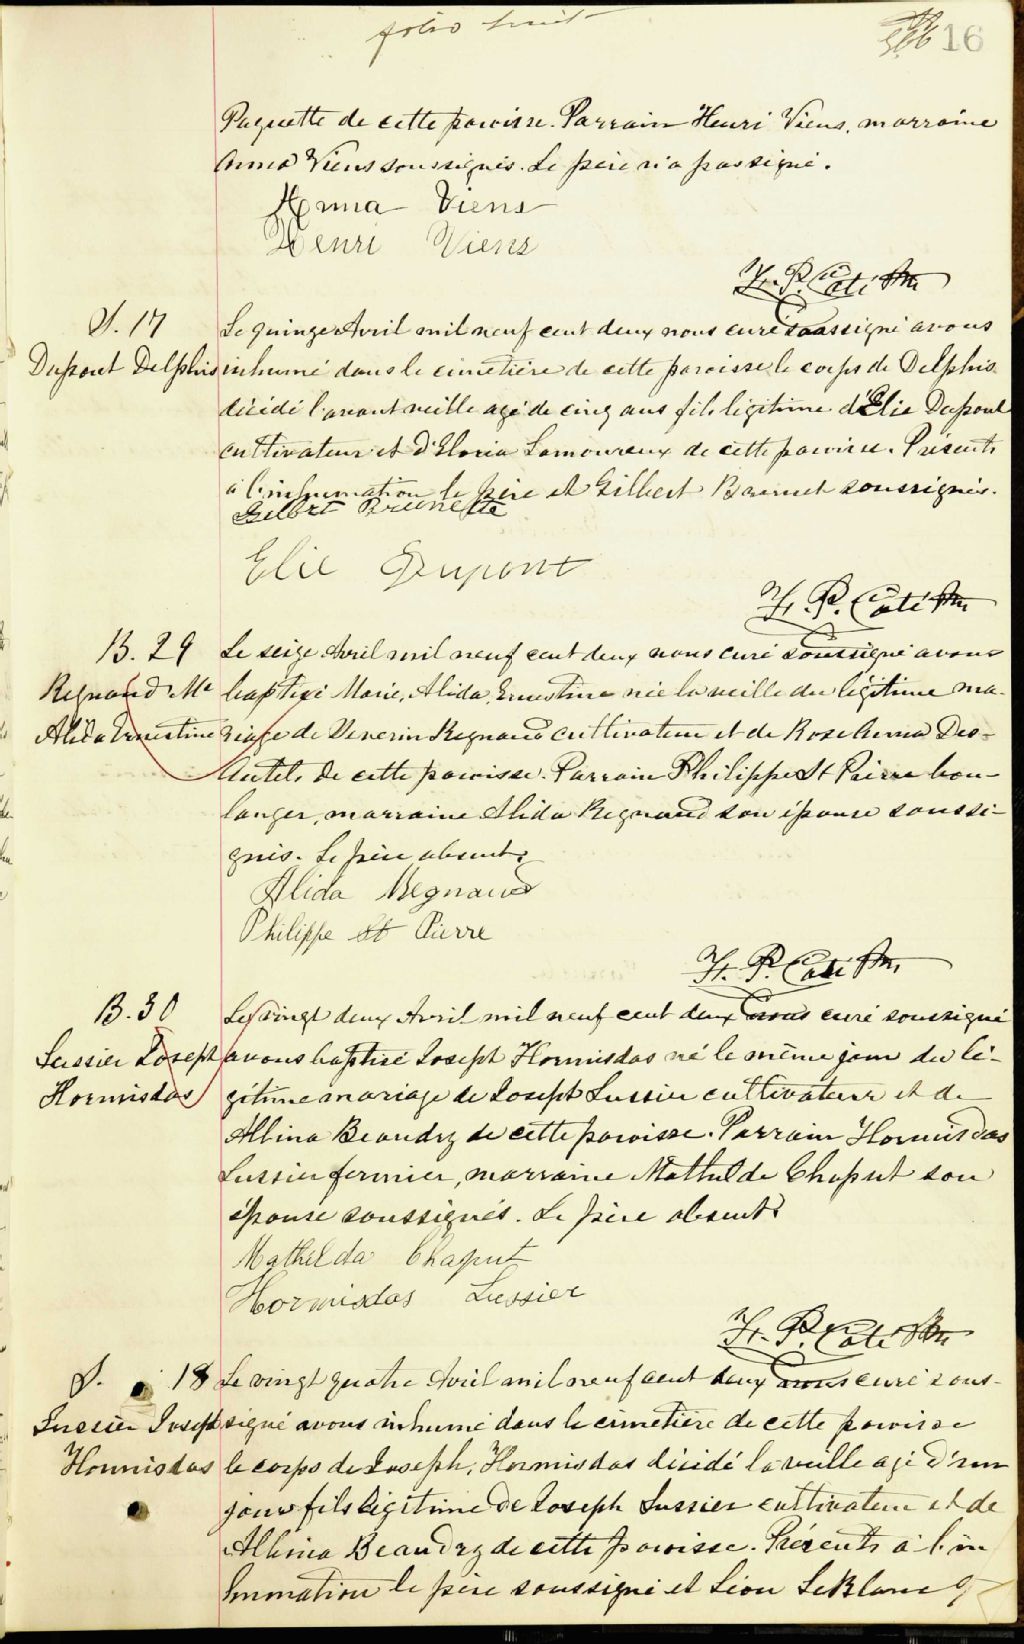 folio huit
16
Paquette de cette paroisse. Parrain Henri Viens, marraine
Anna Viens soussignés. Le père n'a pas signé.
Anna Viens
Henri Viens
H. P. Coté Ptre
S. 17
Dupont Delphis
Le quinze Avril mil neuf cent deux nous curé soussigné avons
inhumé dans le cimetière de cette paroisse le corps de Delphis
décédé l'avant veille agé de cinq ans fils légitime d'Elie Dupont
cultivateur et d'Eloria Lamoureux de cette paroisse. Présents
à l'inhumation le père et Gilbert Brunet soussignés.
Gilbert Brunette
Elie Dupont
H. P. Coté Ptre
B. 29
Regnaud Me
Alida Ernestine
Le seize Avril mil neuf cent deux nous curé soussigné avons
baptisé Marie, Alida, Ernestine née la veille du légitime ma-
riage de Venerin Regnaud cultivateur et de Rose Anna Des-
Autels de cette paroisse. Parrain Philippe St Pierre bou-
langer, marraine Alida Regnaud son épouse soussi-
gnés. Le père absent.
Alida Regnaud
Philippe St Pierre
H. P. Coté Ptre
B. 30
Lussier Joseph
Hormisdas
Le vingt deux Avril mil neuf cent deux nous curé soussigné
avons baptisé Joseph Hormisdas né le même jour du lé-
gitime mariage de Joseph Lussier cultivateur et de
Albina Beaudry de cette paroisse. Parrain Hormisdas
Lussier fermier, marraine Mathilde Chaput son
épouse soussignés. Le père absent.
Mathilda Chaput
Hormisdas Lussier
H. P. Coté Ptre
S. 18
Lussier Joseph
Hormisdas
Le vingt quatre Avril mil neuf cent deux nous curé sous-
signé avons inhumé dans le cimetière de cette paroisse
le corps de Joseph, Hormisdas décédé la veille agé d'un
jour fils légitime de Joseph Lussier cultivateur et de
Albina Beaudry de cette paroisse. Présents à l'in
humation le père soussigné et Léon LeBlanc